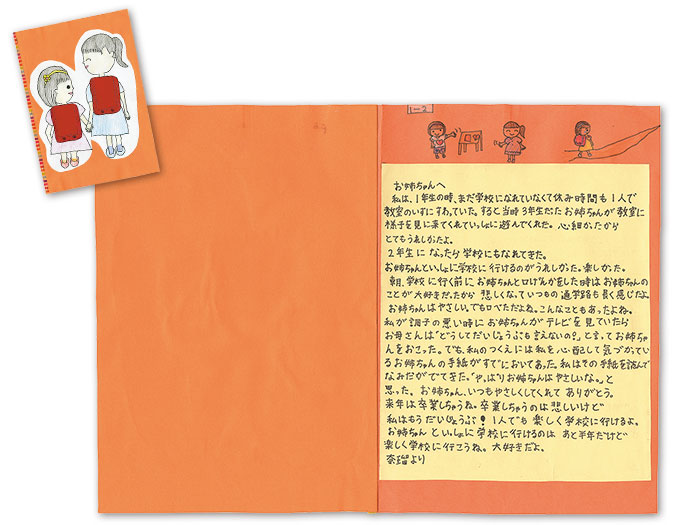 1-2
お姉ちゃんへ
私は、1年生の時、まだ学校になれていなくて休み時間も1人で
教室のいすにすわっていた。すると当時3年生だったお姉ちゃんが教室に
様子を見に来てくれていっしょに遊んでくれた。心細かったから
とてもうれしかったよ。
2年生になったら学校にもなれてきた。
お姉ちゃんといっしょに学校に行けるのがうれしかった。楽しかった。
朝、学校に行く前にお姉ちゃんと口げんかをした時はお姉ちゃんの
ことが大好きだったから悲しくなっていつもの通学路も長く感じたよ。
お姉ちゃんはやさしい。でも口べただよね。こんなこともあったよね。
私が調子の悪い時にお姉ちゃんがテレビを見ていたら
お母さんは「どうしてだいじょうぶも言えないの?」と言ってお姉ちゃ
んをおこった。でも、私のつくえには私を心配して気づかっている
お姉ちゃんの手紙がすでにおいてあった。私はその手紙を読んで
なみだがでてきた。「やっぱりお姉ちゃんはやさしいな。」と
思った。お姉ちゃん、いつもやさしくしてくれてありがとう。
来年は卒業しちゃうね。卒業しちゃうのは悲しいけど
私はもうだいじょうぶ!1人でも楽しく学校に行けるよ。
お姉ちゃんといっしょに学校に行けるのはあと半年だけど
楽しく学校に行こうね。大好きだよ。
奈瑠より